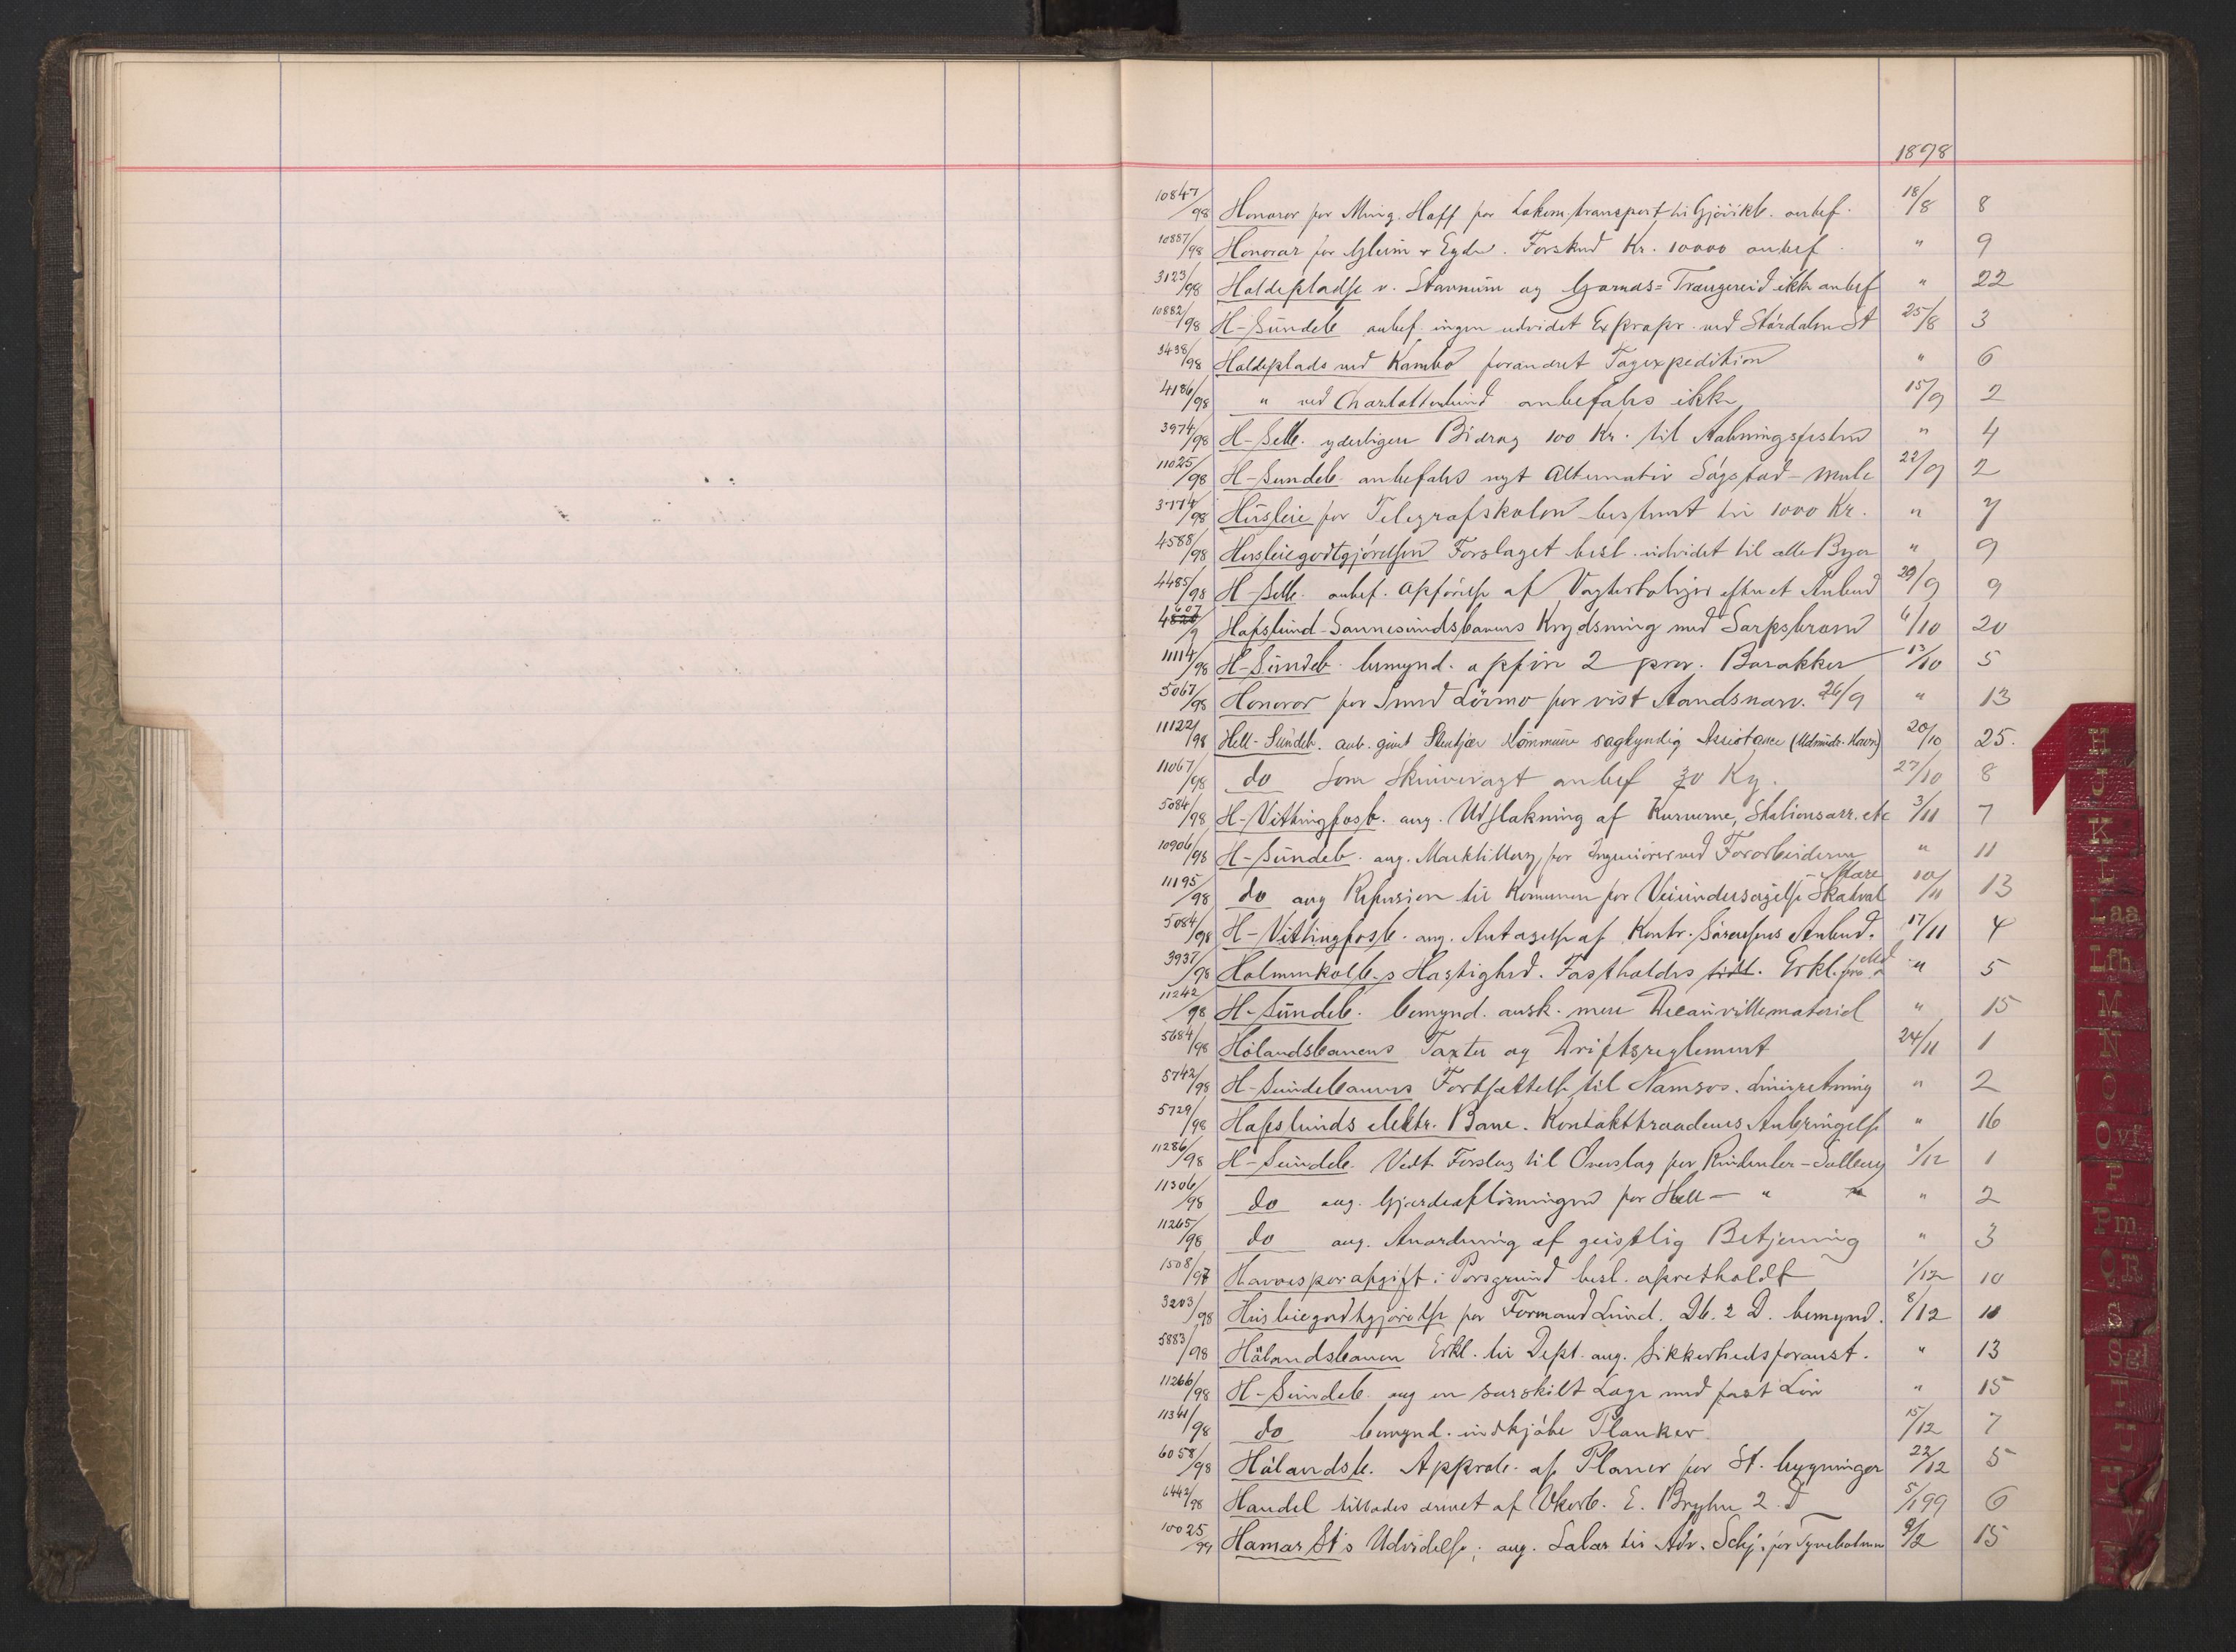 1898
10847/98 Honorar for Ming. Hoff for Lokom.transport til Gjövikb. anbef. 18/8 8
10887/98 Honorar for Gleim & Eyde. Forskud Kr. 10000 anbef. " 9
3123/98 Holdepladse v. Stanum og Garnas=Trængereid ikke anbef " 22
10882/98 H-Sundeb anbef. ingen udvidet Expropr. ved Stördalen St 25/8 3
3438/98 Holdeplads ved Kambo forandret Togexpedition " 6
4186/98 " ved Charlottenlund anbefales ikke 15/9 2
3974/98 H-Selb. yderligere Bidrag 100 Kr. til Aabningsfesten " 4
11025/98 H-Sundeb. anbefales nyt Alternativ Sögstad-Mule 22/9 2
3774/98 Husleie for Telegrafskolen bestemt til 1000 Kr. " 7
4588/98 Husleiegodtgjörelsen Forslaget besl. udvidet til alle Byer " 9
4485/98 H-Selb. anbef. Opförelse af Vogterboliger efter et Anbud 29/9 9
4607/9 Hafslund-Sannesundsbanens Krydsning med Sarpsbroen 6/10 20
11114/98 H-Sundeb. bemynd. opföre 2 prov. Barakker 13/10 5
5067/98 Honorar for Smed Lörmo for vist Aandsnærv. 26/9 " 13
11122/98 Hell-Sundeb. anb. givet Stenkjær Kommune sagkyndig Assistance (Udmudr. Havn) 20/10 25.
11067/98 do Som Skinnevægt anbef 30 Kg. 27/10 8
5084/98 H-Vittingfosb. ang. Udflakning af Kurverne, Stationsarr. etc 3/11 7
10906/98 H-Sundeb. ang. Marktillæg for Ingeniörer ved Forarbeiderne " 11
11195/98 do ang Refusion til Kommunen for Veiundersögelse Mære Skatval 10/11 13
5084/98 H-Vittingfosb. ang. Antagelse af Kontr. Sörensens Anbud. 17/11 4
3937/98 Holmenkolb.s Hastighed. Fastholdes tidl. Erkl. " 5
11242/98 H-Sundeb. bemynd. ansk. mere Decauvillemateriel " 15
5684/98 Hölandsbanens Taxter og Driftsreglement 24/11 1
5742/98 H-Sundebanens Fortsættelse til Namsos. Linieretning " 2
5729/98 Hafslunds elektr. Bane. Kontakttraadenes Anbringelse " 16
11286/98 H-Sundeb. Vedt. Forslag til Overslag for Rinleiret-Sulberg 1/12 1
11306/98 do ang. Gjerdeaflösningen for Hell- " " 2
11265/98 do ang. Anordning af geistlig Betjening " 3
1508/97 Havnesporafgift i Porsgrund besl. opretholdt 1/12 10
3203/98 Husleiegodtgjörelse for Formand Lund. Db. 2 D. bemynd. 8/12 11
5883/98 Hölandsbanen Erkl. til Dept. ang. Sikkerhedsforanst. " 13
11266/98 H-Sundeb. ang en særskilt Læge med fast Lön " 15
11341/98 do bemynd. indkjöbe Planker 15/12 7
6058/98 Hölandsb. Approb. af Planer for St. bygninger 22/12 5
6442/98 Handel tillades drevet af Vkerb. E. Bryhn 2. D 5/1 99 6
10025/99 Hamar St's Udvidelse; ang. Salær til Adv. Schj. for Tyveholmen 9/2 15
H
J
K
L
Laa
Lfh
M
N
O
Ovf
P
Pm
QR
S
Sgl
T
U
V